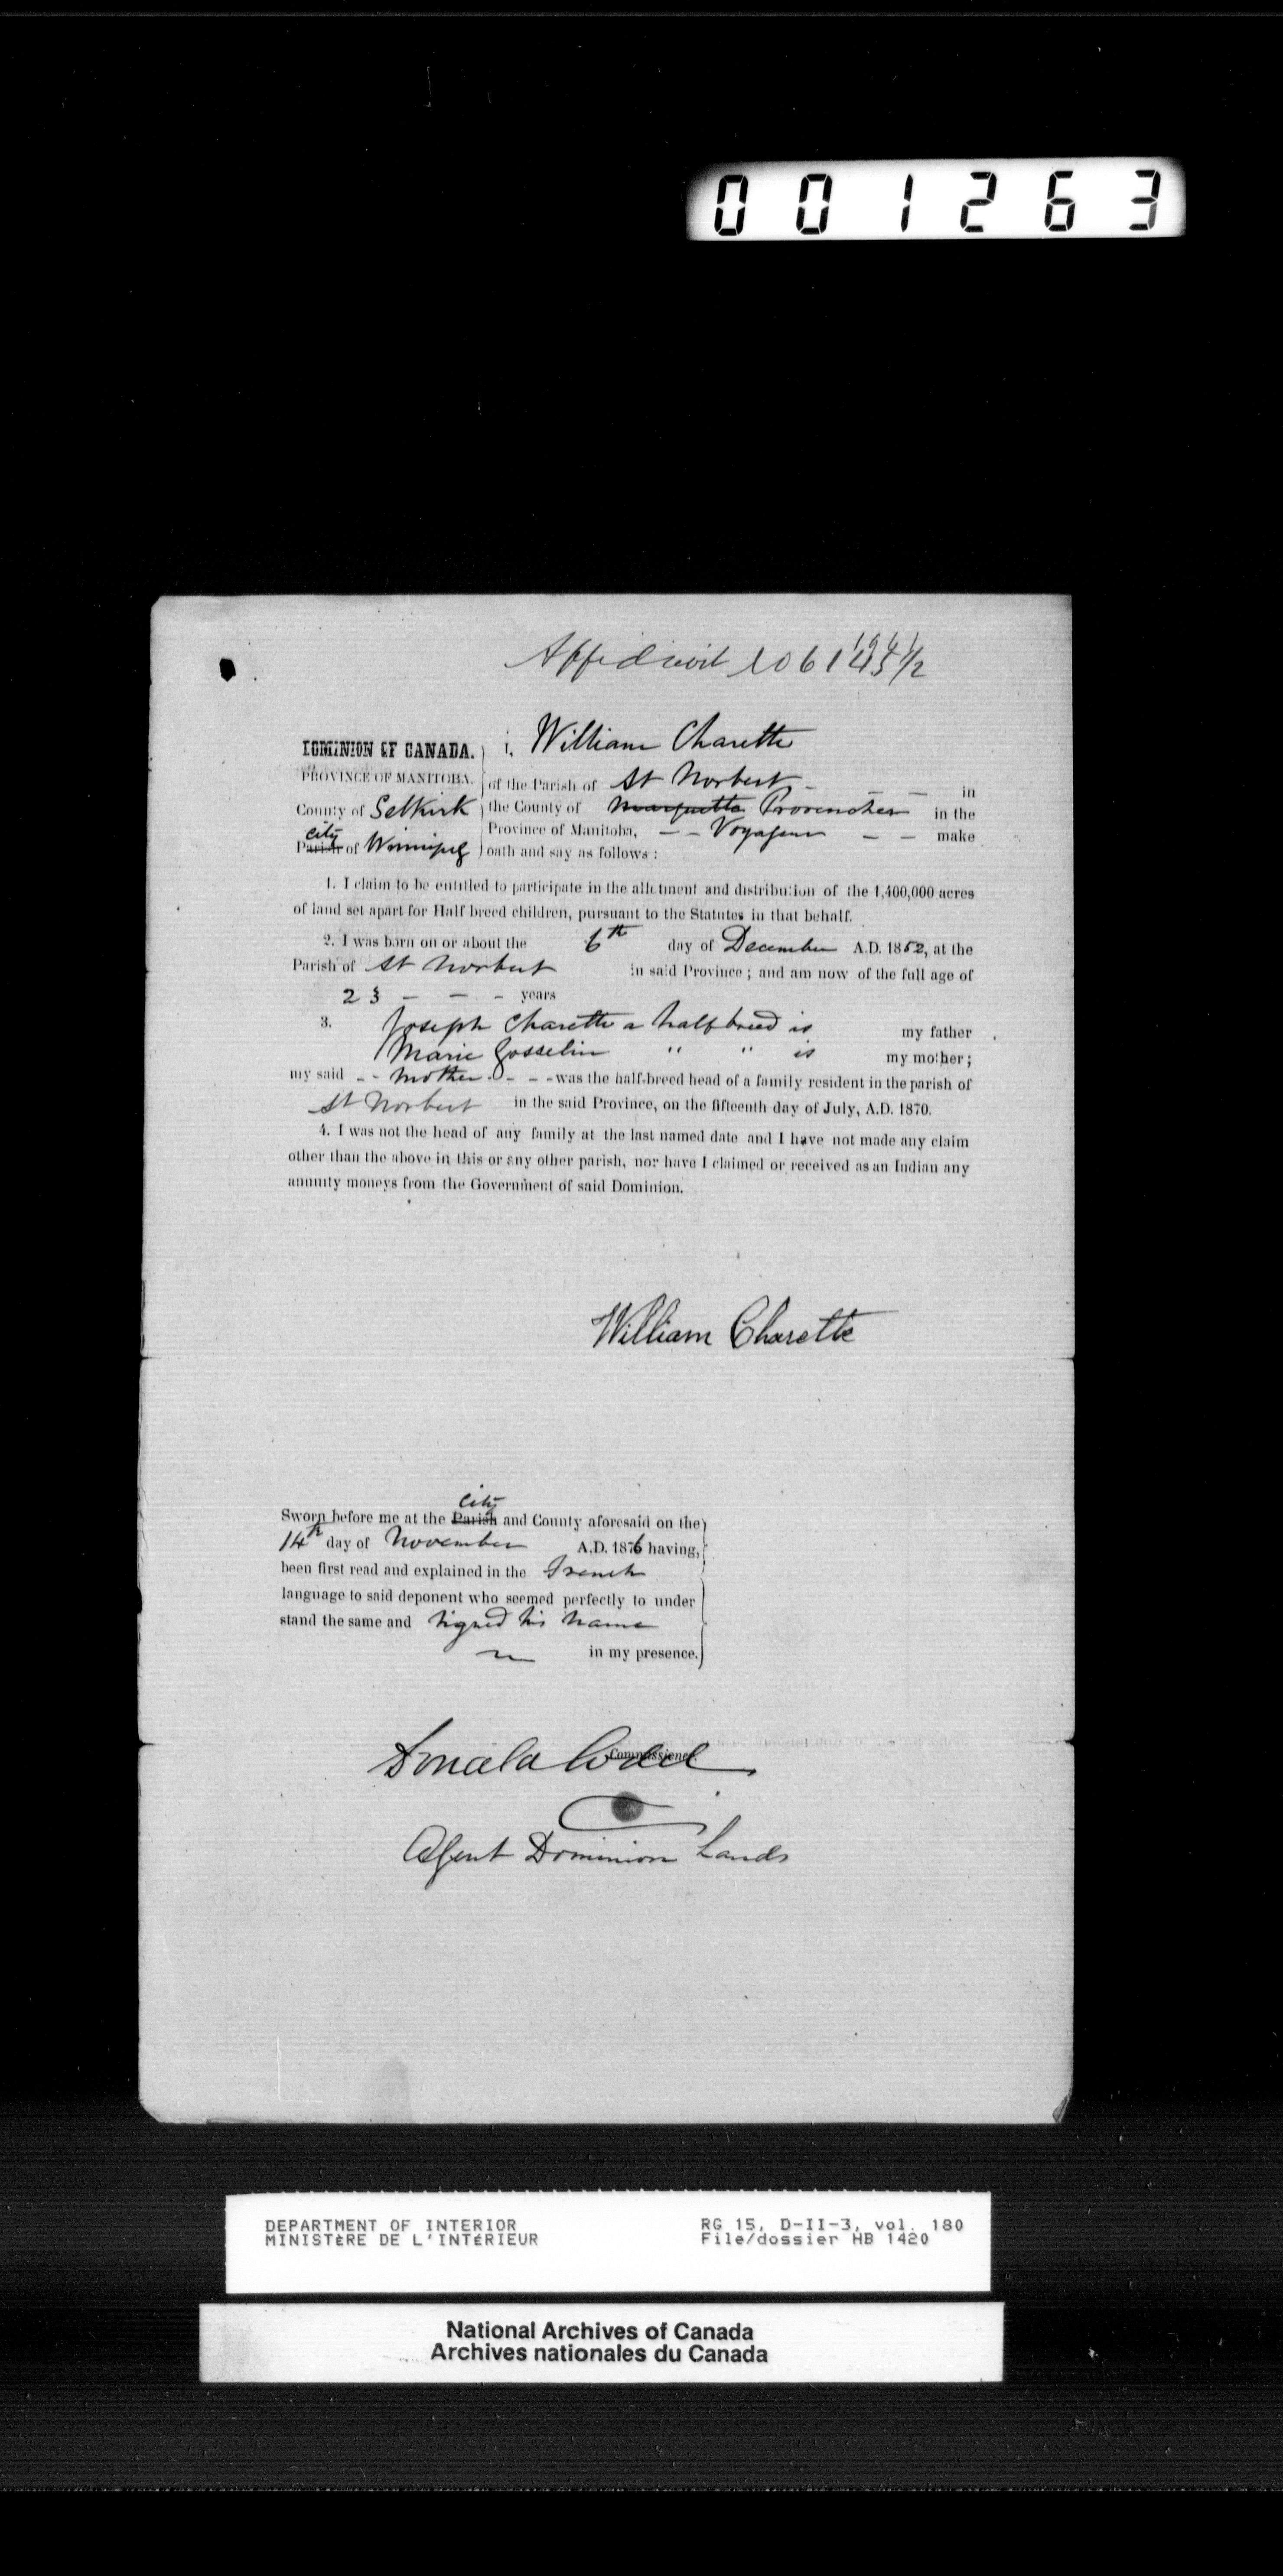 001263
Affidavit
DOMINION OF CANADA. I, William Charette
PROVINCE OF MANITOBA. of the Parish of St Norbert - - - in
County of Selkirk the County of Marquette Provencher in the
City Province of Manitoba, - - Voyageur - - make
Parish of Winnipeg oath and say as follows :
1. I claim to be entitled to participate in the allotment and distribution of the 1,400,000 acres
of land set apart for Half breed children, pursuant to the Statutes in that behalf.
2. I was born on or about the 6th day of December A.D. 1852, at the
Parish of St Norbert in said Province ; and am now of the full age of
23 - - - years
3. Joseph Charette a half breed is my father
Marie Gosselin " " is my mother ;
my said - - Mother - - - was the half-breed head of a family resident in the parish of
St Norbert in the said Province, on the fifteenth day of July, A.D. 1870.
4. I was not the head of any family at the last named date and I have not made any claim
other than the above in this or any other parish, nor have I claimed or received as an Indian any
annuity moneys from the Government of said Dominion.
William Charette
City
Sworn before me at the Parish and County aforesaid on the
14th day of November A.D. 1876 having,
been first read and explained in the French
language to said deponent who seemed perfectly to under
stand the same and signed his name
in my presence.
Donald Codd
Commissioner.
Agent Dominion Lands
DEPARTMENT OF INTERIOR RG 15, D-II-3, vol. 180
MINISTÈRE DE L'INTÉRIEUR File/dossier HB 1420
National Archives of Canada
Archives nationales du Canada